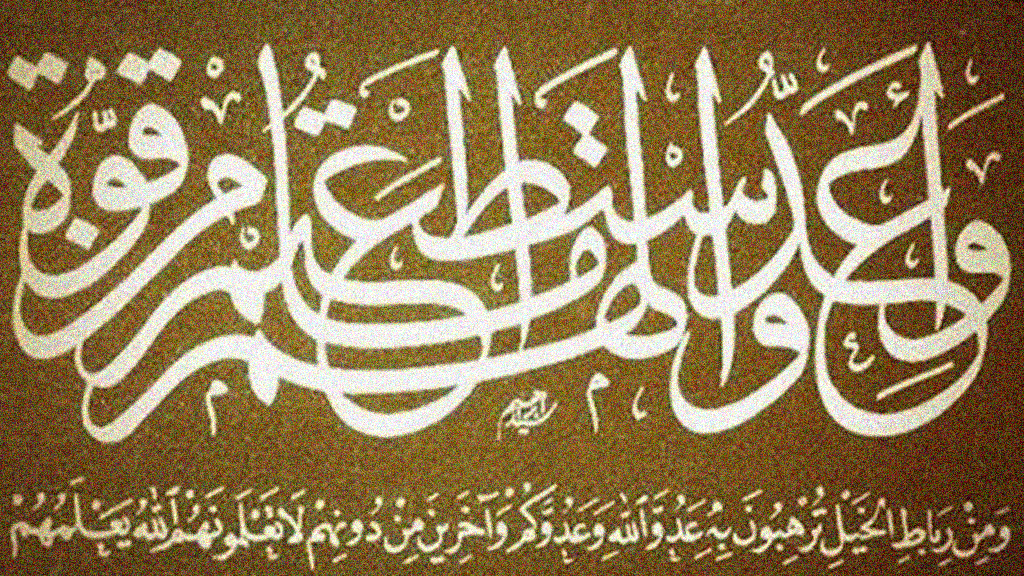 وَأَعِدُّوا لَهُمْ مَا اسْتَطَعْتُمْ مِنْ قُوَّةٍ
وَمِنْ رِبَاطِ الْخَيْلِ تُرْهِبُونَ بِهِ عَدُوَّ اللَّهِ وَعَدُوَّكُمْ وَآخَرِينَ مِنْ دُونِهِمْ لَا تَعْلَمُونَهُمُ اللَّهُ يَعْلَمُهُمْ